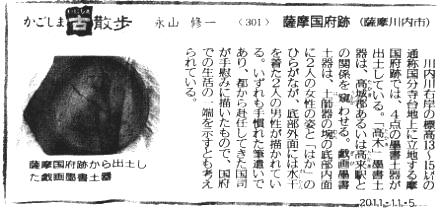 かごしま
いにしえ
古散歩
永山 修一
〈301〉
薩摩国府跡
(薩摩川内市)
川内川右岸の標高13〜15㍍の
通称国分寺台地上に立地する薩摩
国府跡では、4点の墨書土器が
出土している。「高木」墨書土
器は、高城郡あるいは高来駅と
の関係を窺わせる。戯画墨書
土器は、土師器の埦の底部内面
に2人の女性の姿と「はか」の
ひらがなが、底部外面には水干
を着た2人の男性が描かれてい
る。いずれも手慣れた筆遣いで
あり、都から赴任してきた国司
が手慰みに描いたもので、国府
での生活の一端を示すとも考え
られている。
薩摩国府跡から出土し
た戯画墨書土器
2011.-1.1.-5.